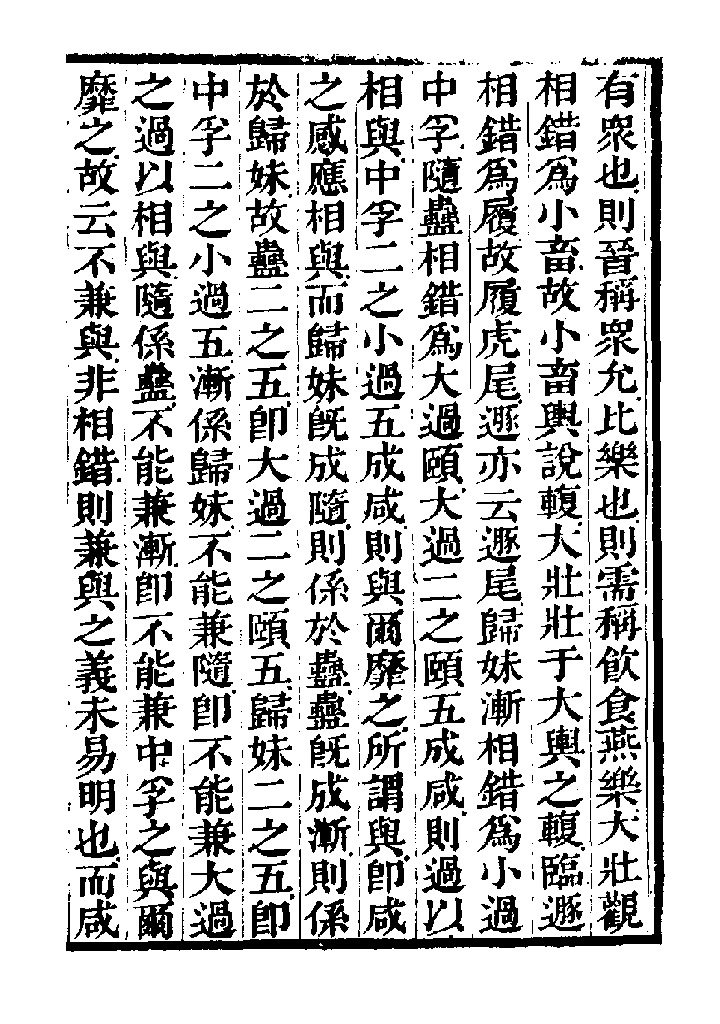 有眾也則晉稱眾允比樂也則需稱飲食燕樂大壯觀
相錯爲小畜故小畜輿說輹大壯壯于大輿之輹臨遯
相錯爲履故履虎尾遯亦云遯尾歸妹漸相錯爲小過
中孚隨蠱相錯爲大過頤大過二之頤五成咸則過以
相與中孚二之小過五成咸則與爾靡之所謂與卽咸
之感應相與而歸妹旣成隨則係於蠱蠱旣成漸則係
於歸妹故蠱二之五卽大過二之頤五歸妹二之五卽
中孚二之小過五漸係歸妹不能兼隨卽不能兼大過
之過以相與隨係蠱不能兼漸卽不能兼中孚之與爾
靡之故云不兼與非相錯則兼與之義未易明也而咸